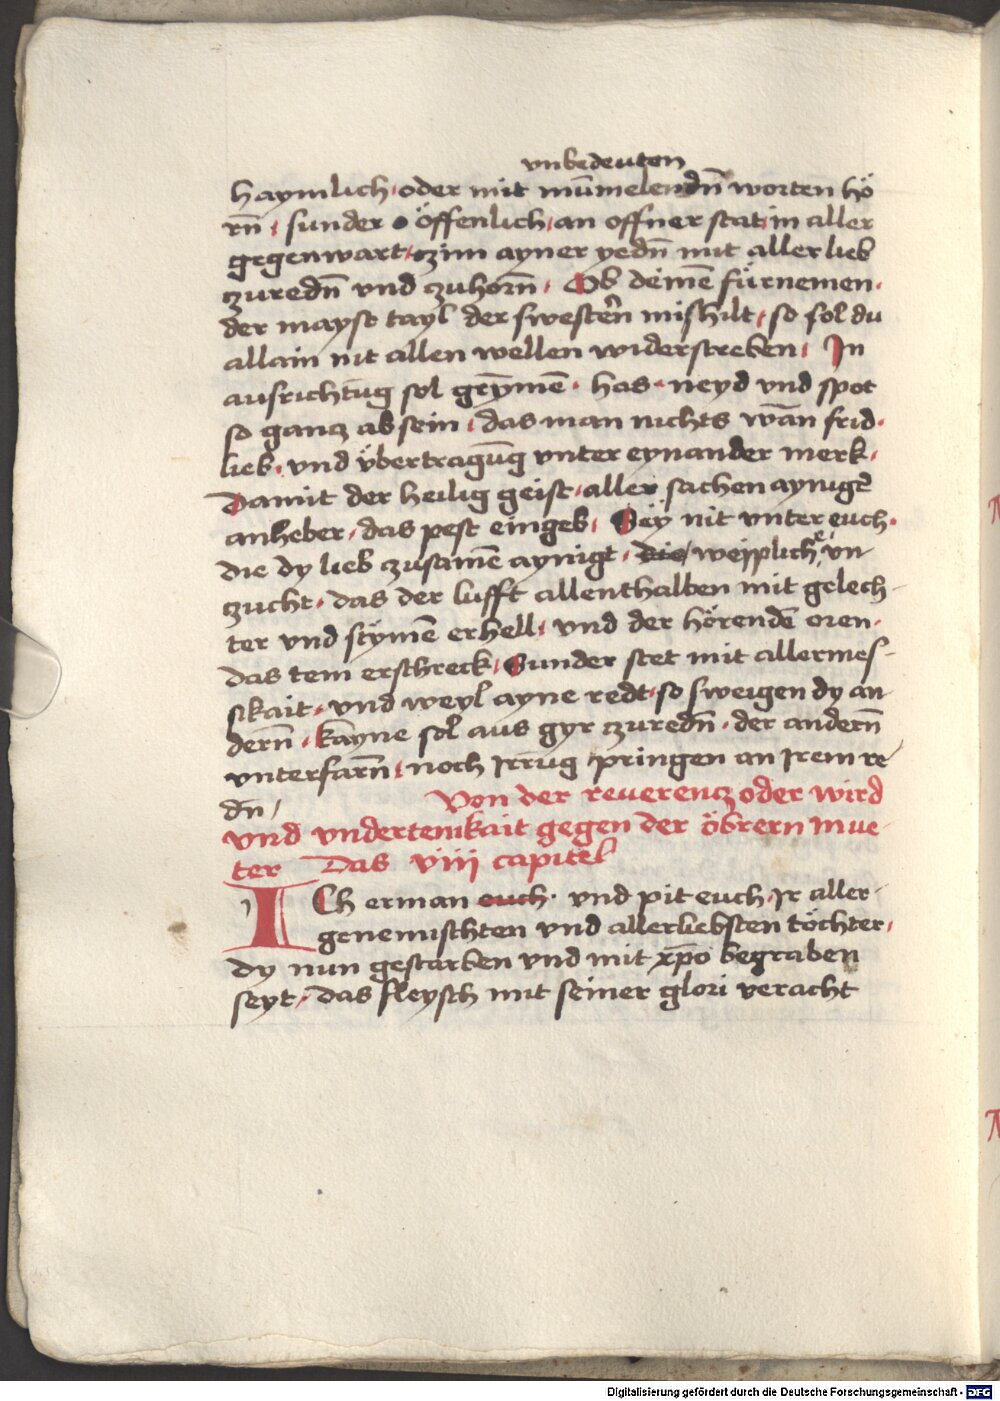 vnbedeuten
haymlich · oder mit mūmelendn̄ worten hö
rn̄ · sunder öffenlich · an offner stat · in aller
gegenwart · zim ayner yedn̄ mit aller lieb
zuredn̄ vnd zuhorn̄ · Ob deinē fürnemen ·
der mayst tayl der swestern̄ mishilt · so sol du
allain nit allen wellen widerstreben · In
ausrichtūg sol grȳmē · has · neyd vnd spot
so gancz ab sein · das man nichts wān frid ·
lieb · vnd übertragūg vnter eynander merk ·
Damit der heilig geist · aller sachen aynig̃
anheber · das pest eingeb · Sey nit vnter euch ·
die dy lieb zusamē aynigt · die weiplich vn
zucht · das der lufft allenthalben mit gelech-
ter vnd stȳmē erhell · vnd der hörendē oren ·
das tem erschreck · Sunder stet mit allermes-
sikait · vnd weyl ayne redt · so sweigen dy an
dern̄ · kayne sol aus gyr zuredn̄ · der andern̄
vnterfarn̄ · noch Irrūg pringen an Irem re
dn /
Von der reuerencz oder wird
vnd vndertenikait gegen der öbrern mue-
ter Das viii capitel
ICh erman euch · vnd pit euch · Ir aller-
genemischten vnd allerliebsten töchter ·
dy nun gestarben vnd mit xp̄o begraben
seyt · das fleysch mit seiner glori veracht
Digitalisierung gefördert durch die Deutsche Forschungsgemeinschaft - DFG